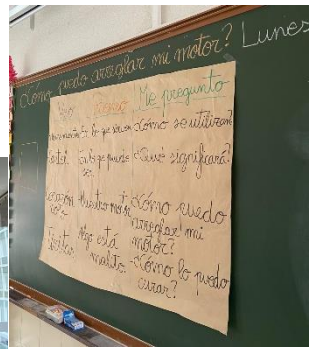 ¿Cómo puedo arreglar mi motor? Lunes
Veo Pienso Me pregunto
lo que sirven ¿Cómo se utilizan?
Cartel que puede ser ¿Qué significará?
corazón roto Nuestro motor ¿Cómo puedo arreglar mi motor?
Tiritas Algo está malito. -¿Cómo lo puedo curar?